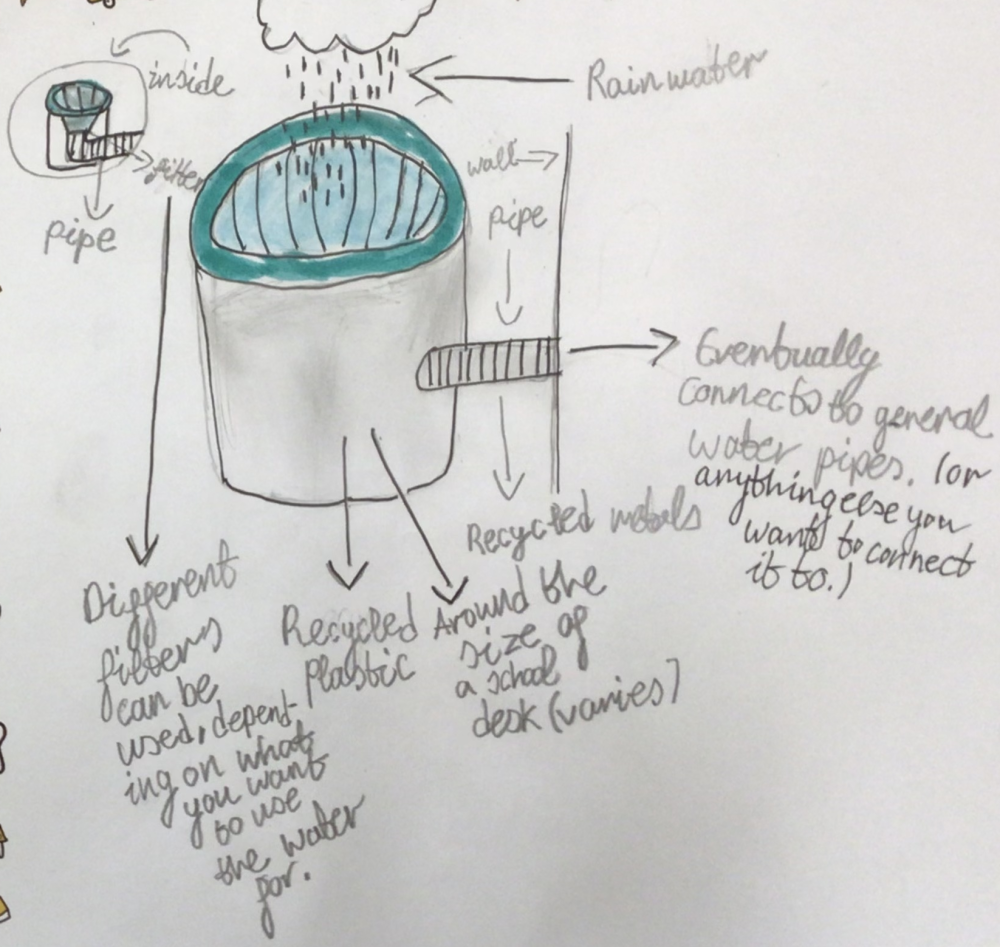 inside
Rainwater
filter
pipe
wall
pipe
Eventually
connects to general
water pipes. (or
anything else you
want to connect
it to.)
Recycled metals
Different
filters
can be
used, depend-
ing on what
you want
to use
the water
for.
Recycled
Plastic
Around the
size of
a school
desk (varies)